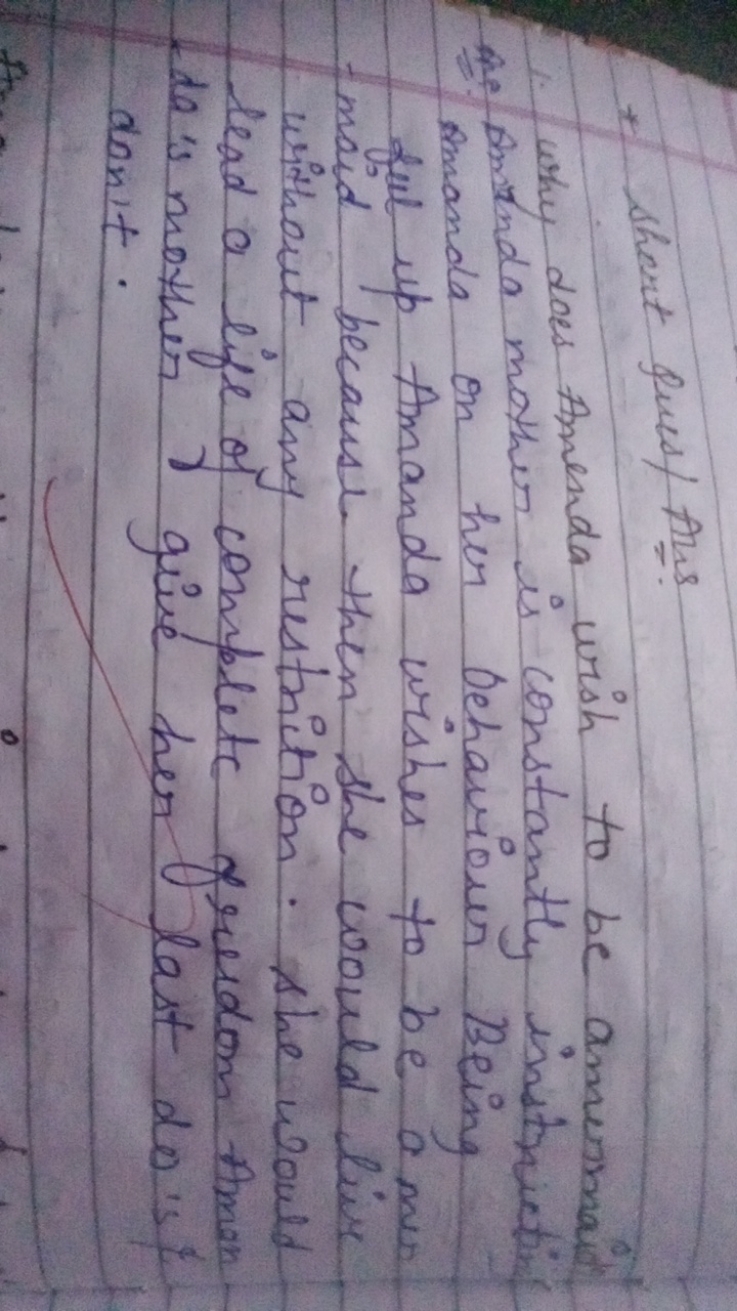 + short Ques/Ans
1. why does Amenda wish to be amermaid
Ans Amanda mother is constantly instructin
Amanda on her behaviour Being
Ful up Amanda wishes to be a mer
-maid because then she would live
without any restriction. she would
lead a life of complete freedom Aman
-da's mother give her last do's &
don't.